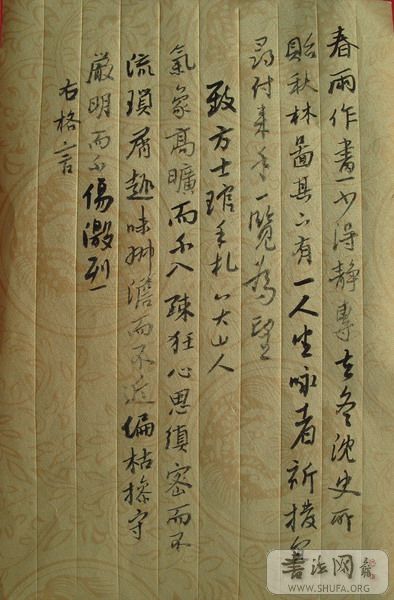 春雨作畫少得靜專去冬沈史所
貽秋林圖其下有一人坐咏者祈撥冗
尋付来手一覽為望
致方士琯手札八大山人
氣象高曠而不入疎狂心思縝密而不
流瑣屑趣味沖澹而不近偏枯操守
嚴明而不傷激烈
右格言
書法网
WWW.SHUFA.ORG